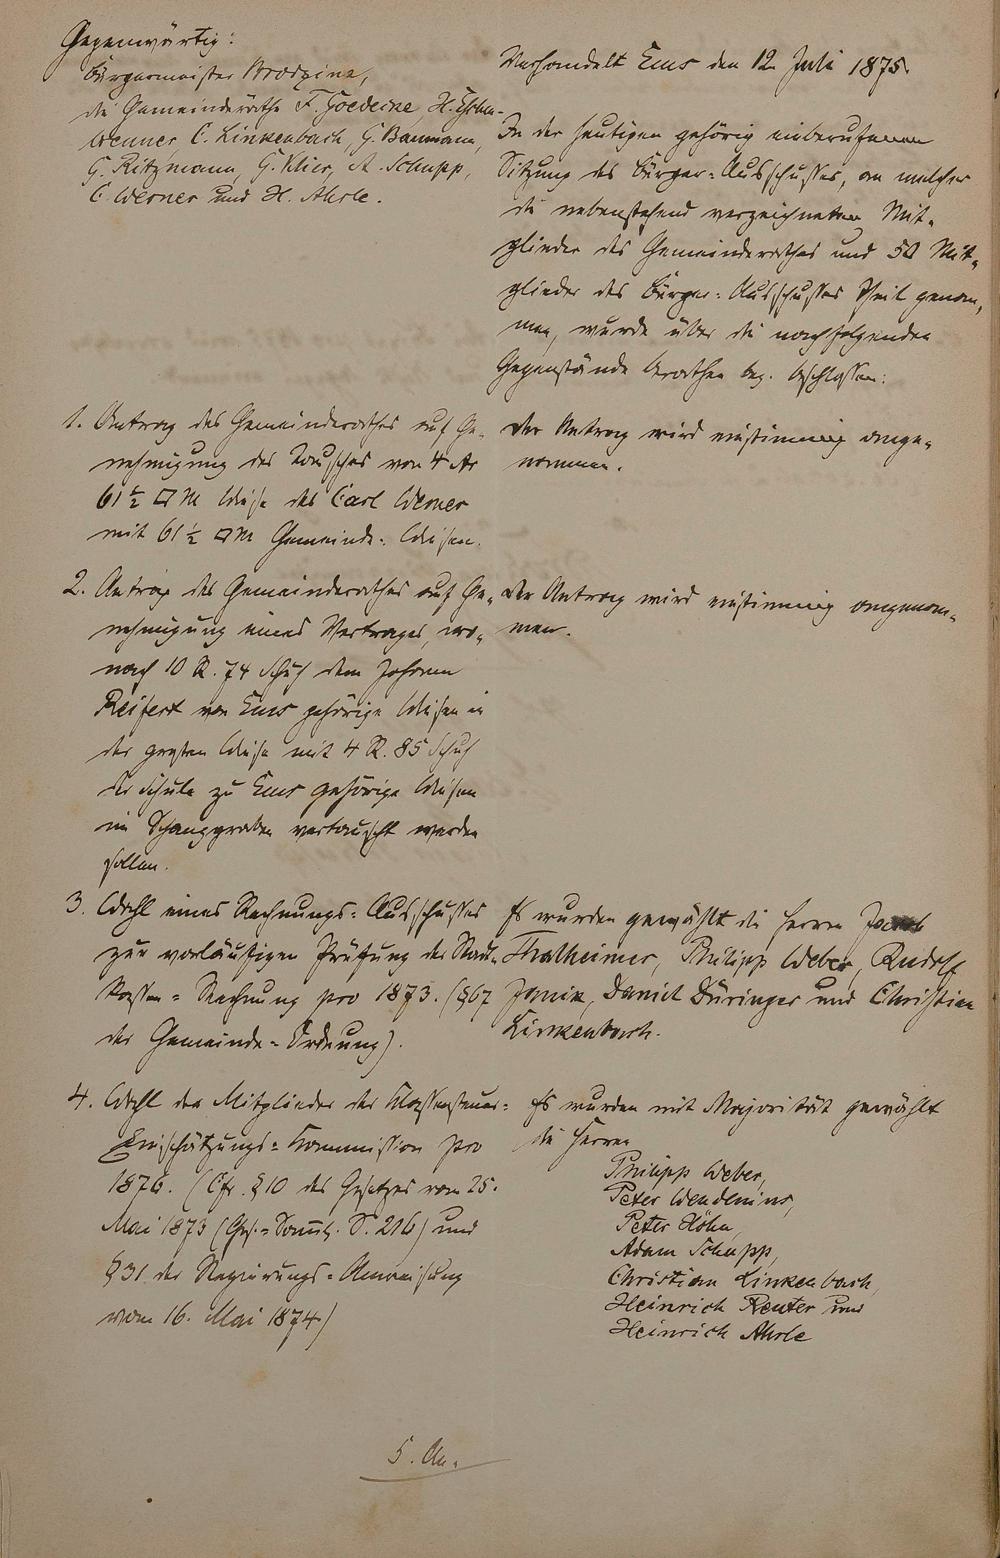 Gegenwärtig:
Bürgermeister Brodzina,
die Gemeinderäthe F. Goedecke, H.
Werner, C. Linkenbach, G. Baumann,
G. Ritzmann, G. Klier, A. Schupp,
C. Werner und H. Ahrle.
Verhandelt Ems den 12. Juli 1875.
In der heutigen gehörig einberufenen
Sitzung des Bürger-Ausschusses, an welcher
die nebenstehend verzeichneten Mit-
glieder des Gemeinderathes und 50 Mit-
glieder des Bürger-Ausschusses Theil genom-
men, wurde über die nachfolgenden
Gegenstände berathen bez. beschlossen:
1. Antrag des Gemeinderathes auf Ge-
nehmigung des Tausches von 4 Ar
61 1/2 □M Wiese des Carl Werner
mit 61 1/2 □M Gemeinde-Wiesen.
Der Antrag wird einstimmig ange-
nommen.
2. Antrag des Gemeinderathes auf Ge-
nehmigung eines Vertrages, wo-
nach 10 R. 74 Schuh dem Johann
Reifert von Ems gehörige Wiesen in
der großen Wiese mit 4 R. 85 Schuh
der Schule zu Ems gehörige Wiesen
im vertauscht werden
sollen.
Der Antrag wird einstimmig angenom-
men.
3. Wahl eines Rechnungs-Ausschusses
zur vorläufigen Prüfung der Stadt-
kassen-Rechnung pro 1873. (§67
der Gemeinde-Ordnung).
Es wurden gewählt die Herren Jacob
Thalheimer, Philipp Weber, Rudolf
Daniel Düringer und Christian
Linkenbach.
4. Wahl der Mitglieder der Klassensteuer-
Einschätzungs-Kommission pro
1876. (Cfr. §10 des Gesetzes vom 25.
Mai 1873 (Ges.-Samml. S. 216) und
§31 der Regierungs-Anweisung
vom 16. Mai 1874)
Es wurden mit Majorität gewählt
die Herren
Philipp Weber,
Peter Wendenius,
Peter Höhn,
Adam Schupp,
Christian Linkenbach,
Heinrich Reuter und
Heinrich Ahrle
5. An-